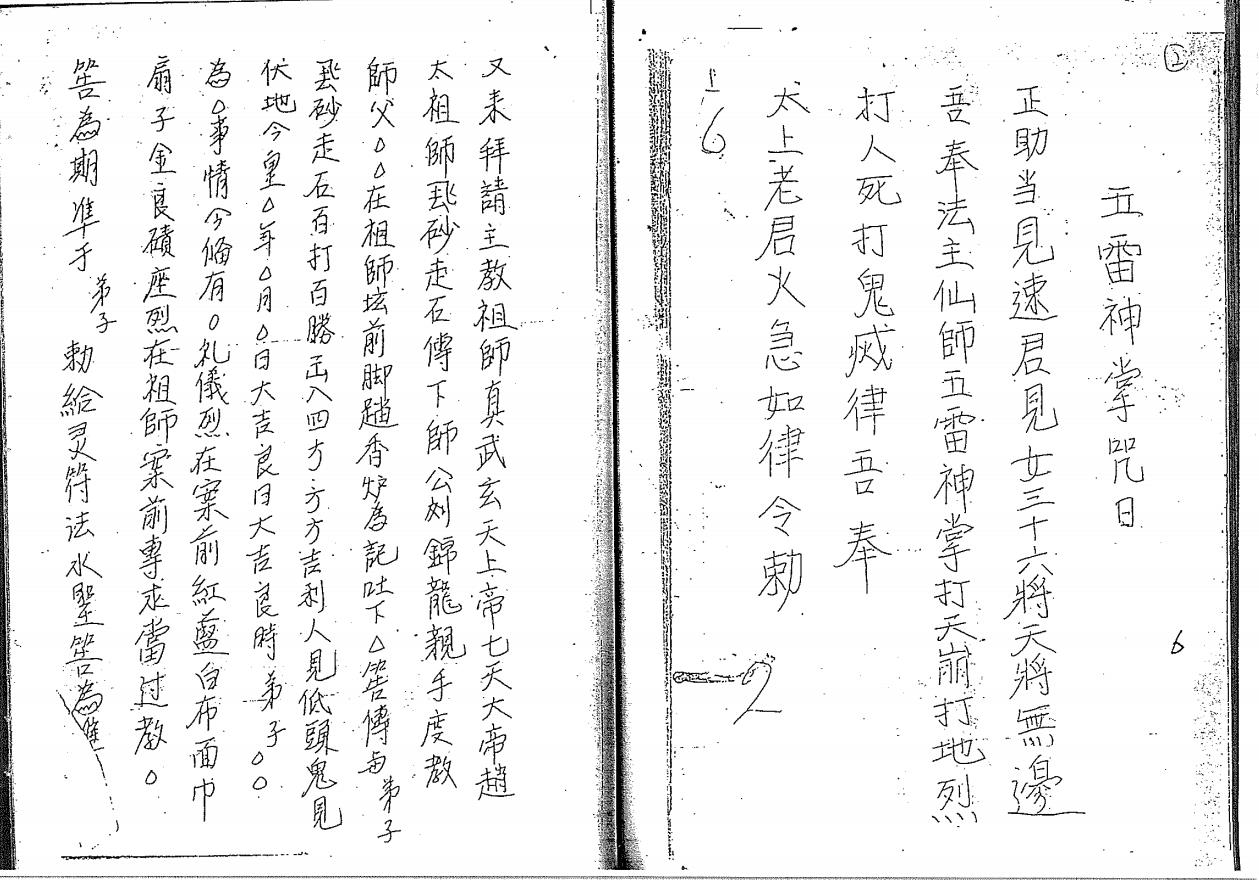 ②
五雷神掌咒日
正助当見速君見女三十六將天將無邊
吾奉法主仙師五雷神掌打天崩打地烈
打人死打鬼威律吾奉
太上老君火急如律令勅
6
6
2
又来拜請主教祖師真武玄天上帝七天大帝趙
太祖師飛砂走石傳下師公刘錦龍親手度教
師父△△在祖師坛前脚踏香炉為記吐下△筶傳与弟子
飛砂走石百打百勝出入四方方方吉利人見低頭鬼見
伏地今皇△年△月△日大吉良日大吉良時弟子△△
為△事情今俻有△礼儀烈在案前紅藍白布面巾
扇子金良磧座烈在祖師案前專求當过教△
筶為期準于弟子勅給灵符法水聖筶為準